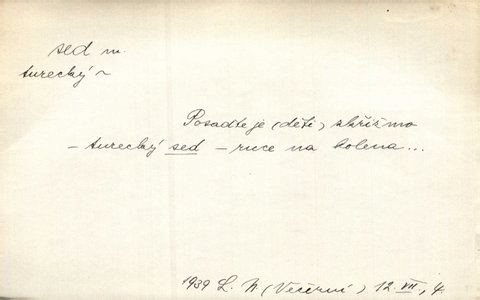 sed m.
turecký ~
Posaďte je (děti) skřižmo
– turecký sed – ruce na kolena...
1939 L. N (Večerní) 12. VII., 4.